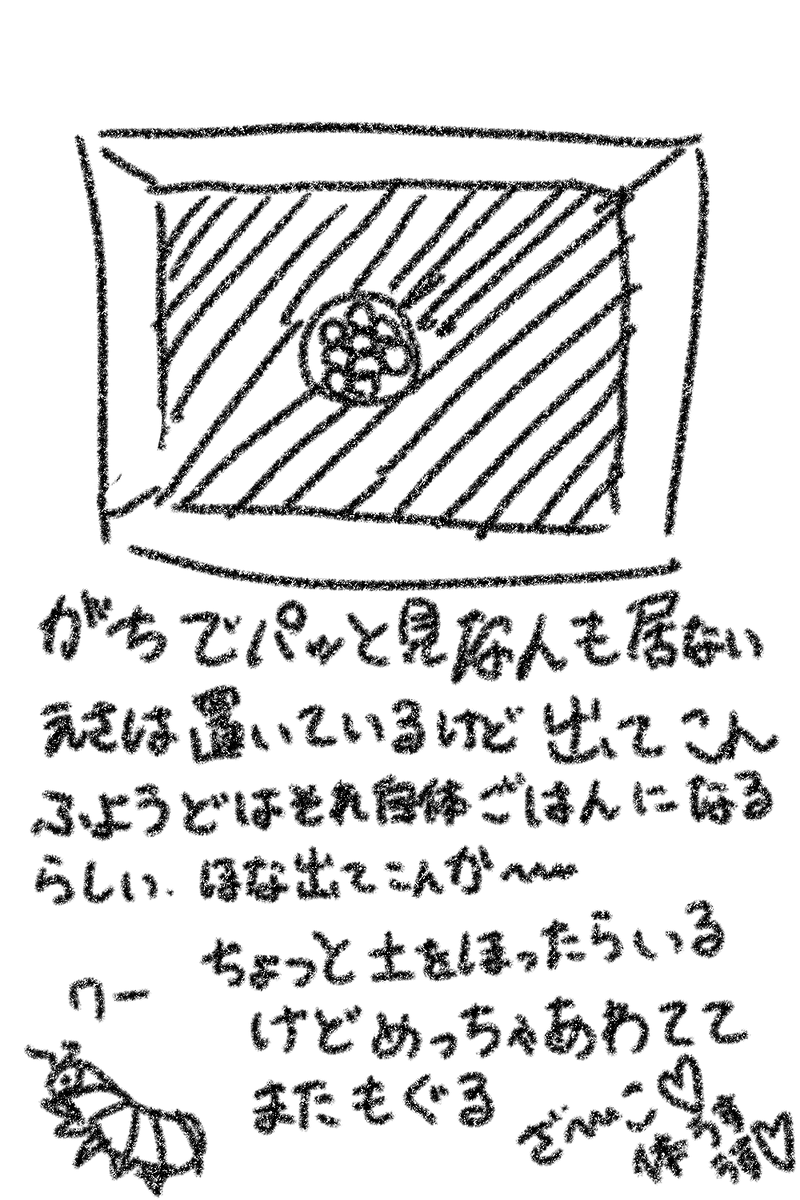 がちでパッと見なんも居ない
えさは置いているけど出てこん
ふようどはそれ自体ごはんになる
らしい. ほな出てこんか〜〜
ちょっと土をほったらいる
けどめっちゃあわてて
またもぐる
ワー
ざ〜こ♡
体
うす
うす♡